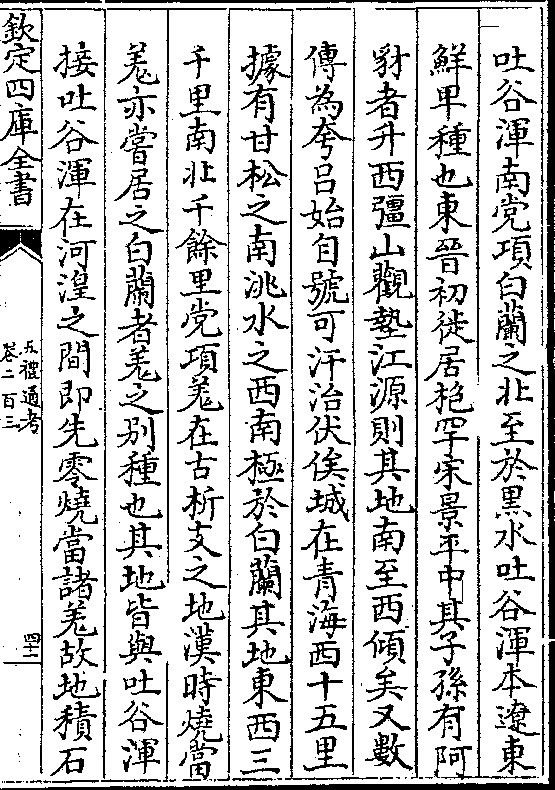 吐谷渾南党項白蘭之北至於黒水吐谷渾本遼東
鮮卑種也東晉初徙居枹罕宋景平中其子孫有阿
豺者升西彊山觀墊江源則其地南至西傾矣又數
傳為夸呂始自號可汗治伏俟城在青海西十五里
據有甘松之南洮水之西南極於白蘭其地東西三
千里南北千餘里党項羌在古析支之地漢時燒當
羌亦嘗居之白蘭者羌之别種也其地皆與吐谷渾
接吐谷渾在河湟之間即先零燒當諸羌故地積石
欽定四庫全書
五禮通考
卷二百三
四十二